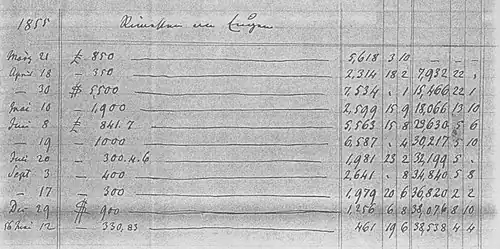 1855 Rimessen von Eugen
März 21 £ 850 5,618 3 10 — —
April 18 — 350 2,314 18 2 7,932 22 .
— 30 $ 5,500 7,534 . 1 15,466 22 1
Mai 10 — 1,900 2,599 15 9 18,066 13 10
Juni 8 £ 841.7 5,563 15 8 23,630 5 6
— 19 — 1000 6,587 . 4 30,217 5 10
Juli 20 — 300.4.6 1,981 23 2 32,199 5 .
Sept 3 — 400 2,641 . 8 34,840 5 8
— 17 — 300 1,979 20 6 36,820 2 2
Dec 29 $ 900 1,256 6 8 38,076 8 10
56 Mai 12 — 330,83 461 19 6 38,538 4 4